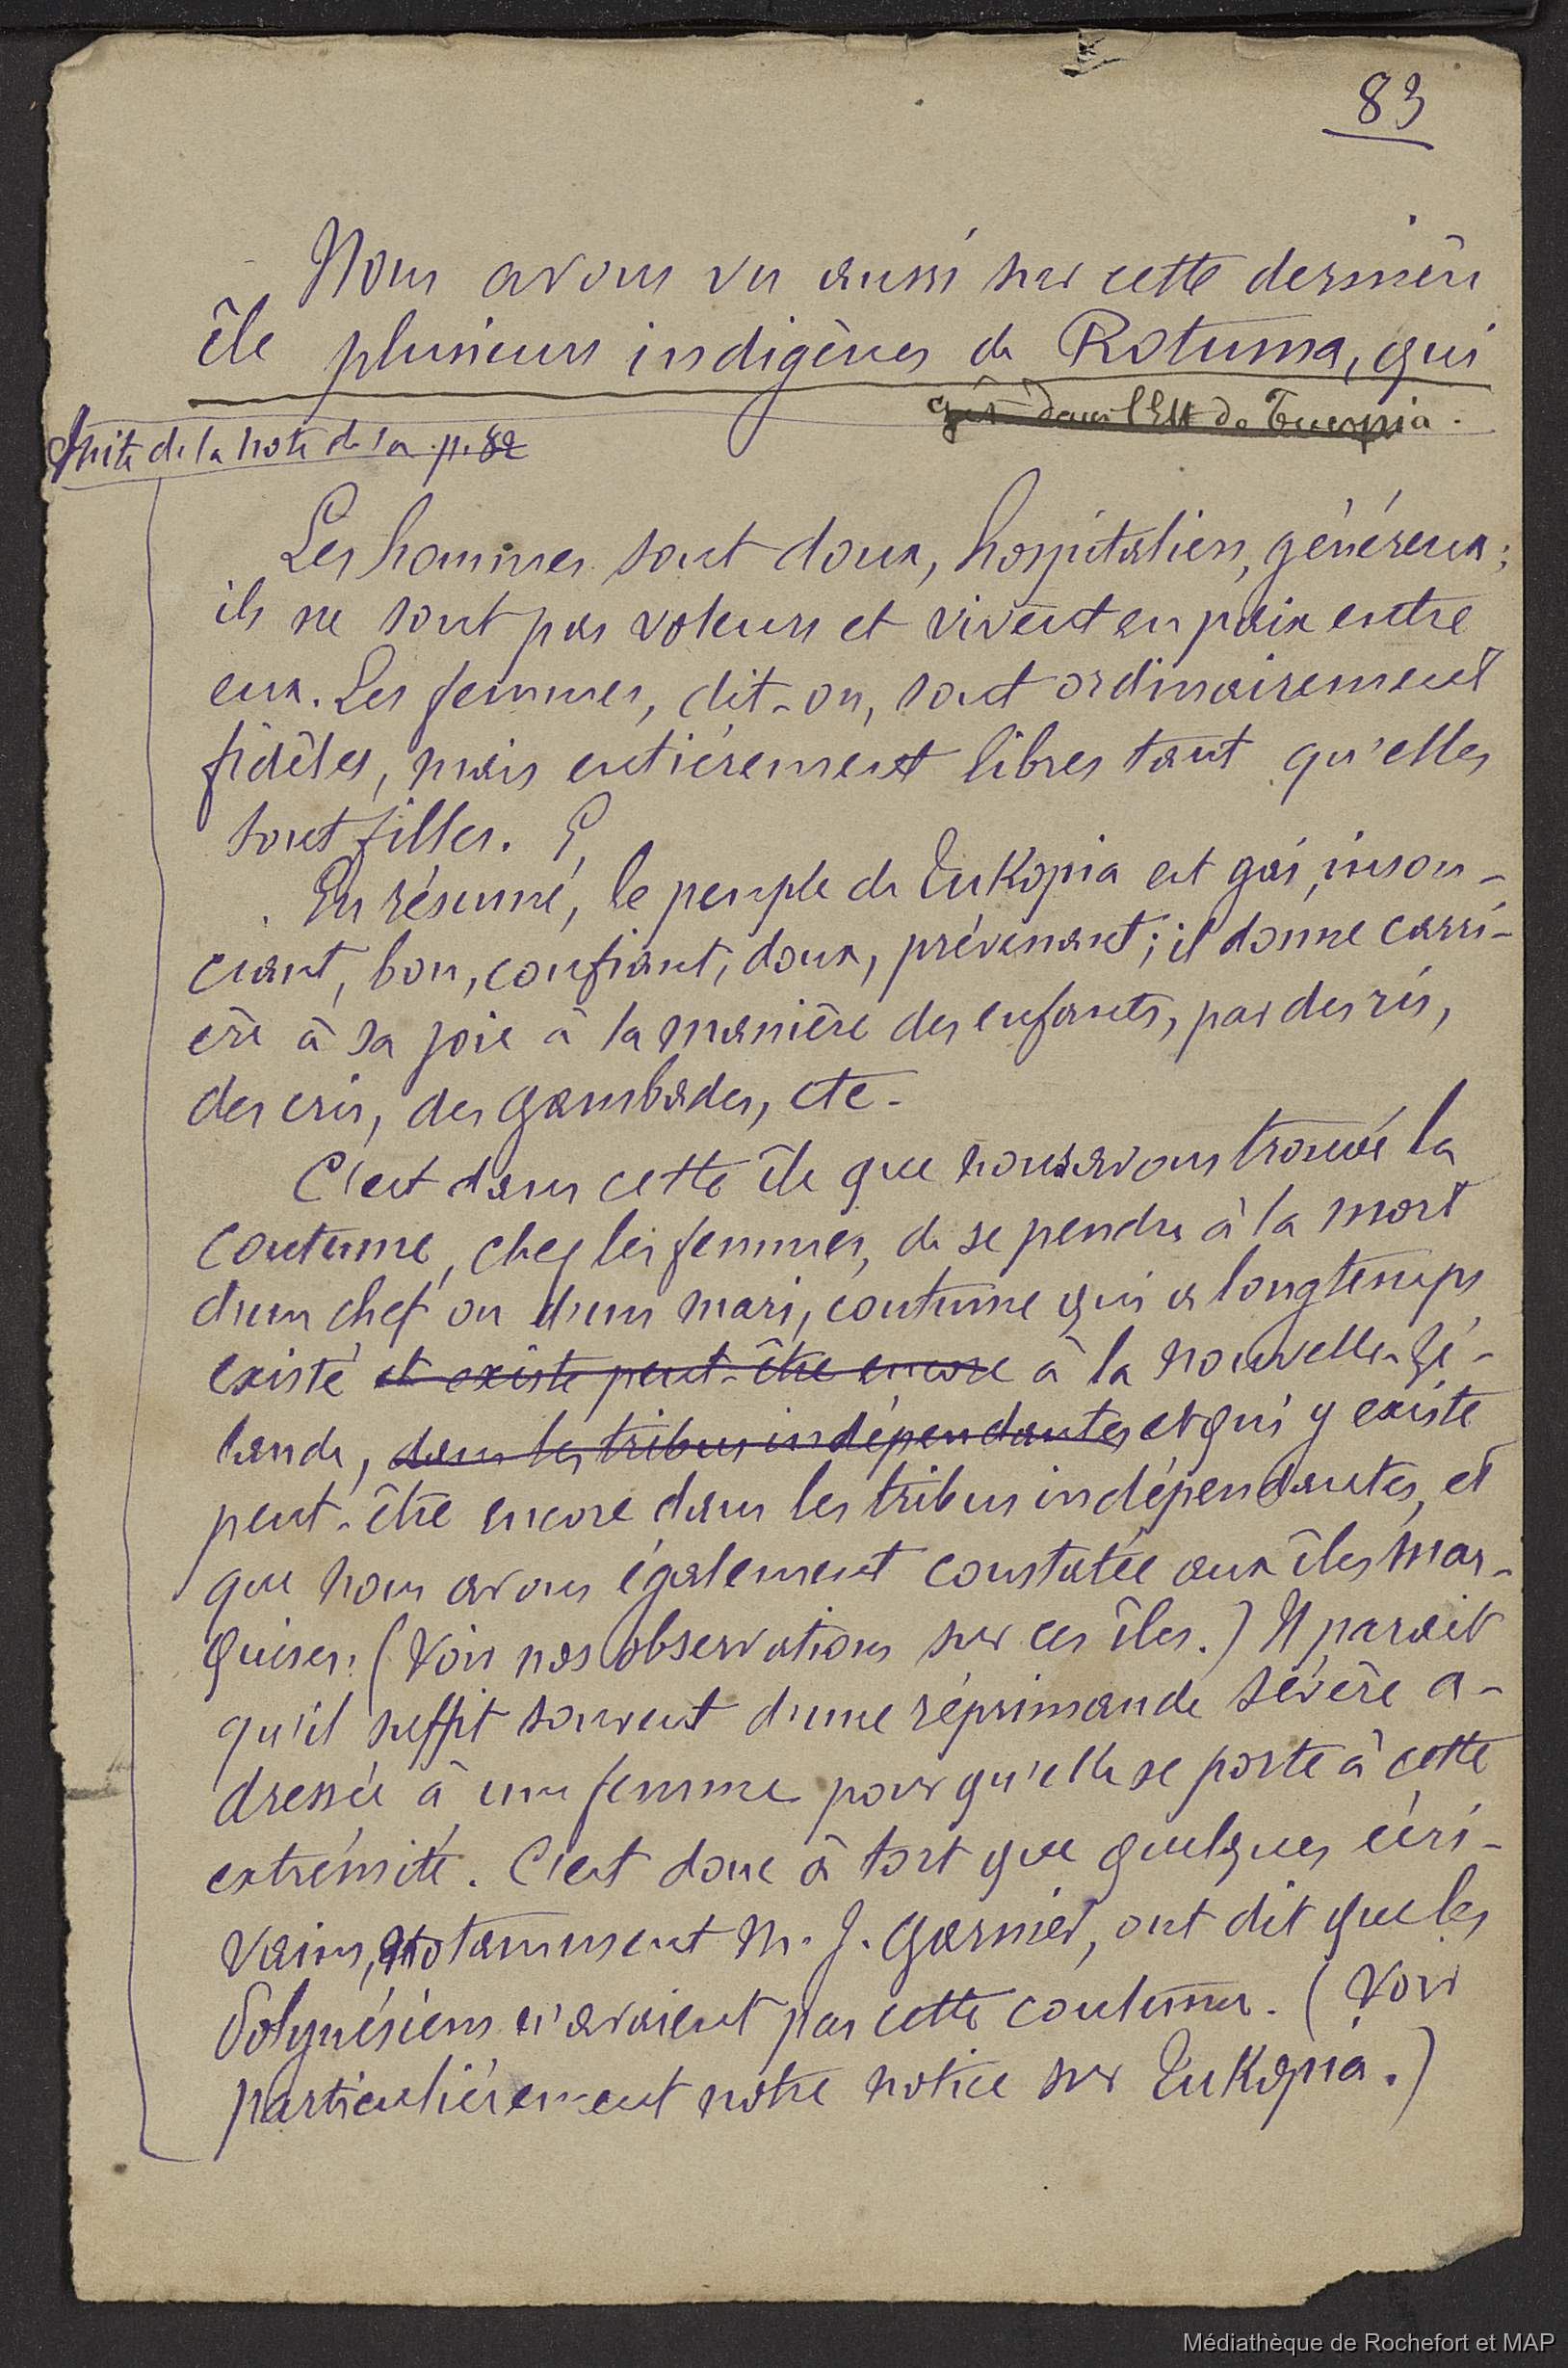 83
Nous avons vu aussi sur cette dernière
île plusieurs indigènes de Rotuma, qui
gît dans l'Est de Tucopia.
Suite de la note de la p. 82
Les hommes sont doux, hospitaliers, généreux;
ils ne sont pas voleurs et vivent en paix entre
eux. Les femmes, dit-on, sont ordinairement
fidèles, mais entiérement libres tant qu'elles
sont filles.
En résumé, le peuple de Tukopia est gai, insou-
ciant, bon, confiant, doux, prévenant; il donne carri-
ère à sa joie à la manière des enfants, par des ris,
des cris, des gambades, etc.
C'est dans cette île que nous avons trouvé la
coutume, chez les femmes, de se pendre à la mort
d'un chef ou d'un mari, coutume qui a longtemps
existé et existe peut-être encore à la nouvelle-Zé-
lande, dans les tribus indépendantes et qui y existe
peut-être encore dans les tribus indépendantes, et
que nous avons également constatée aux îles mar-
quises. (Voir nos observations sur ces îles.) Il parait
qu'il suffit souvent d'une réprimande sévère a-
dressée à une femme pour qu'elle se porte à cette
extrémité. C'est donc à tort que quelques écri-
vains, notamment M. J. Garnier, ont dit que les
Polynésiens n'avaient pas cette coutume. (Voir
particuliérement notre notice sur Tukopia.)
Médiathèque de Rochefort et MAP